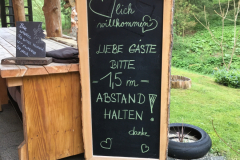 willkommen
LIEBE GÄSTE
BITTE
- 1,5 m -
ABSTAND
HALTEN !
danke